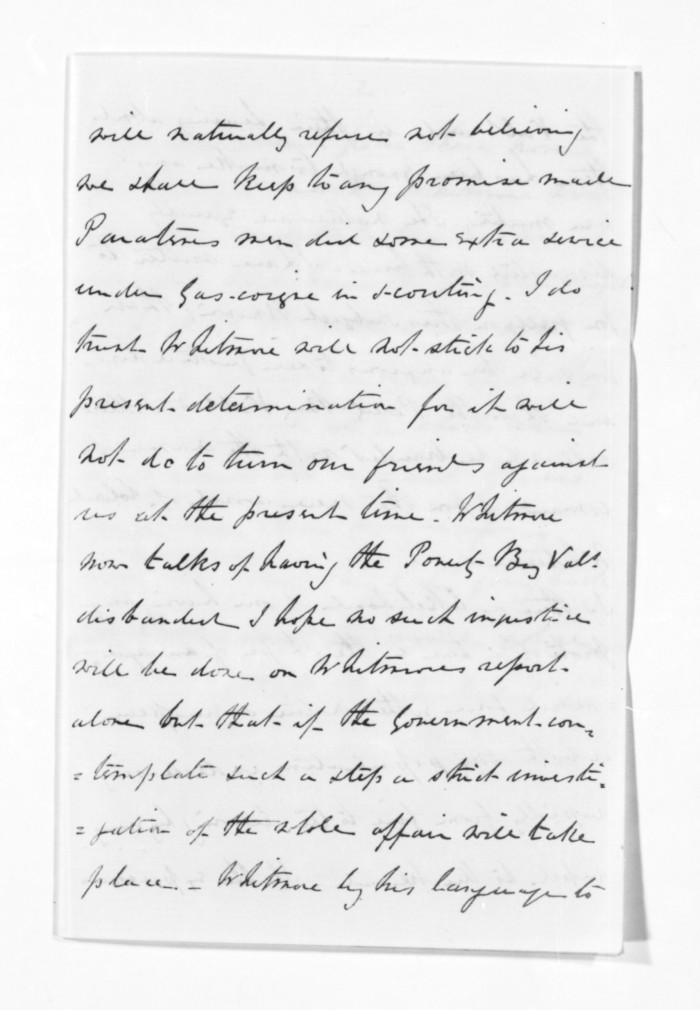 will naturally refuse not believing
we shall keep to any promise made
Paratenes men did some extra service
under Gas-coigne in scouting. I do
trust Whitmore will not stick to his
present determination for it will
not do to turn our friends against
us at the present time. Whitmore
now talks of having the Poverty Bay Vols.
disbanded I hope no such injustice
will be done on Whitmores report
alone but that if the Government con=
=template such a step a strict investi=
=gation of the whole affair will take
place. = Whitmore by his language to